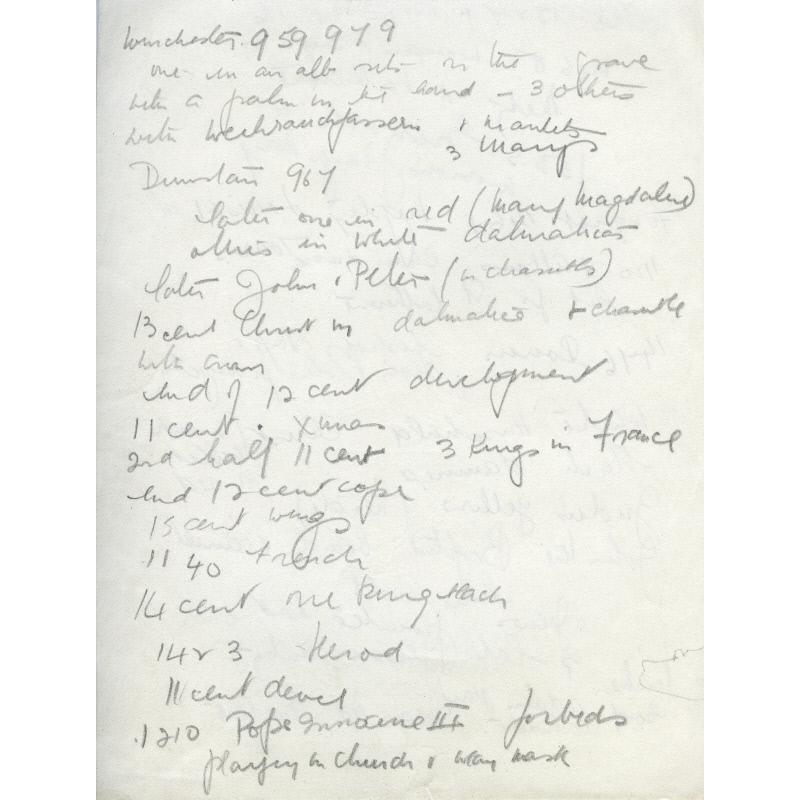 Winchester. 959 979
one in an alb sits in the grave
with a palm in his hand - 3 others
with Weihrauchfassern & mantels
3 Marys
Dunstan 967
later one in red (Mary Magdalene)
others in white dalmaticas
later John & Peter (in chasuble)
13 cent Christ in dalmatica & chasuble
with crown
end of 12 cent development
11 cent. Xmas
2nd half 11 cent 3 Kings in France
end 12 cent cope
15 cent wings
1140 French
14 cent one King black
14 3 Herod
11 cent devel
1210 Pope Innocence III forbids
playing in church & wear mask